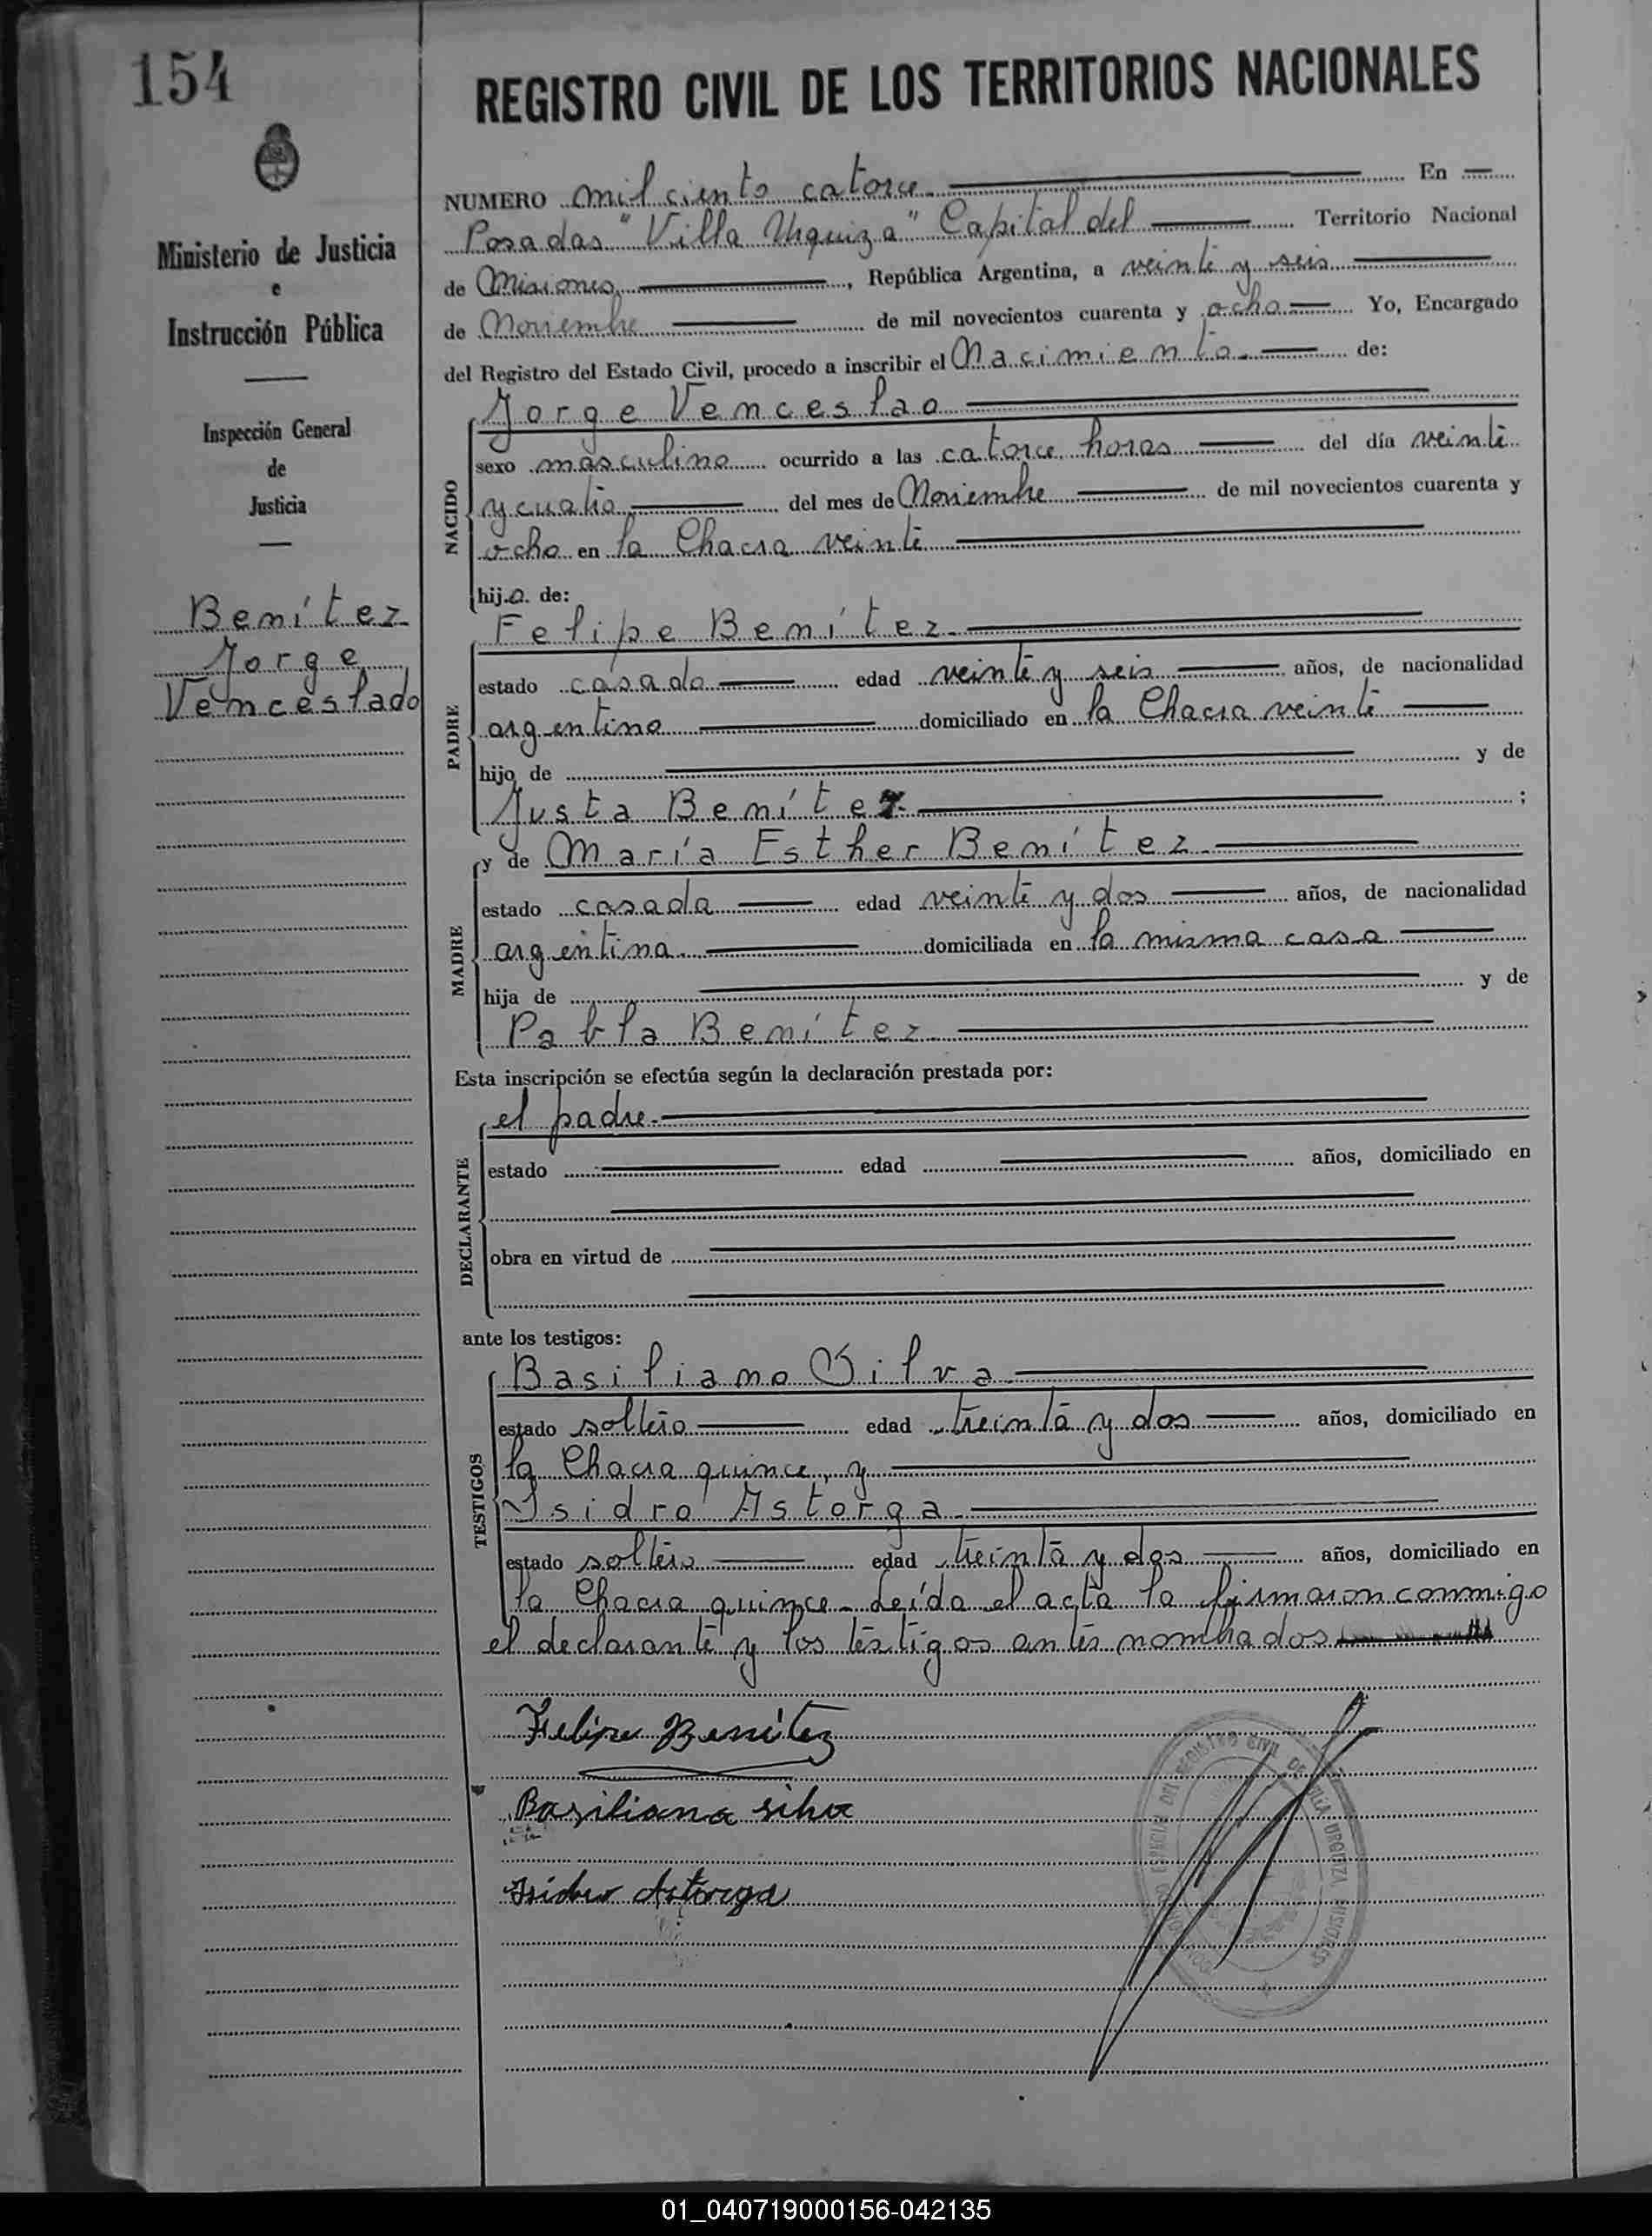 154
REGISTRO CIVIL DE LOS TERRITORIOS NACIONALES
Ministerio de Justicia
e
Instrucción Pública
Inspección General
de
Justicia
Benítez
Jorge
Venceslado
NUMERO mil ciento catorce. En
Posadas "Villa Urquiza" Capital del Territorio Nacional
de Misiones, República Argentina, a veinte y seis
de Noviembre de mil novecientos cuarenta y ocho Yo, Encargado
del Registro del Estado Civil, procedo a inscribir el Nacimiento de:
Jorge Venceslao
NACIDO
sexo masculino ocurrido a las catorce horas del día veinte
y cuatro del mes de Noviembre de mil novecientos cuarenta y
ocho en la Chacra veinte
hij.o. de:
Felipe Benítez
PADRE
estado casado edad veinte y seis años, de nacionalidad
argentino domiciliado en la Chacra veinte
hijo de y de
Justa Benítez ;
MADRE
y de María Esther Benítez
estado casada edad veinte y dos años, de nacionalidad
argentina. domiciliada en la misma casa
hija de y de
Pabla Benítez
Esta inscripción se efectúa según la declaración prestada por:
DECLARANTE
el padre.
estado edad años, domiciliado en
obra en virtud de
ante los testigos:
TESTIGOS
Basiliano Silva
estado soltero edad treinta y dos años, domiciliado en
la Chacra quince, y
Isidro Astorga
estado soltero edad treinta y dos años, domiciliado en
la Chacra quince. Leída el acta la firmaron conmigo
el declarante y los testigos antes nombrados
Felipe Benítez
Basiliana silva
Isidro Astorga
DEL REGISTRO CIVIL DE VILLA URQUIZA (MISIONES)
01_040719000156-042135